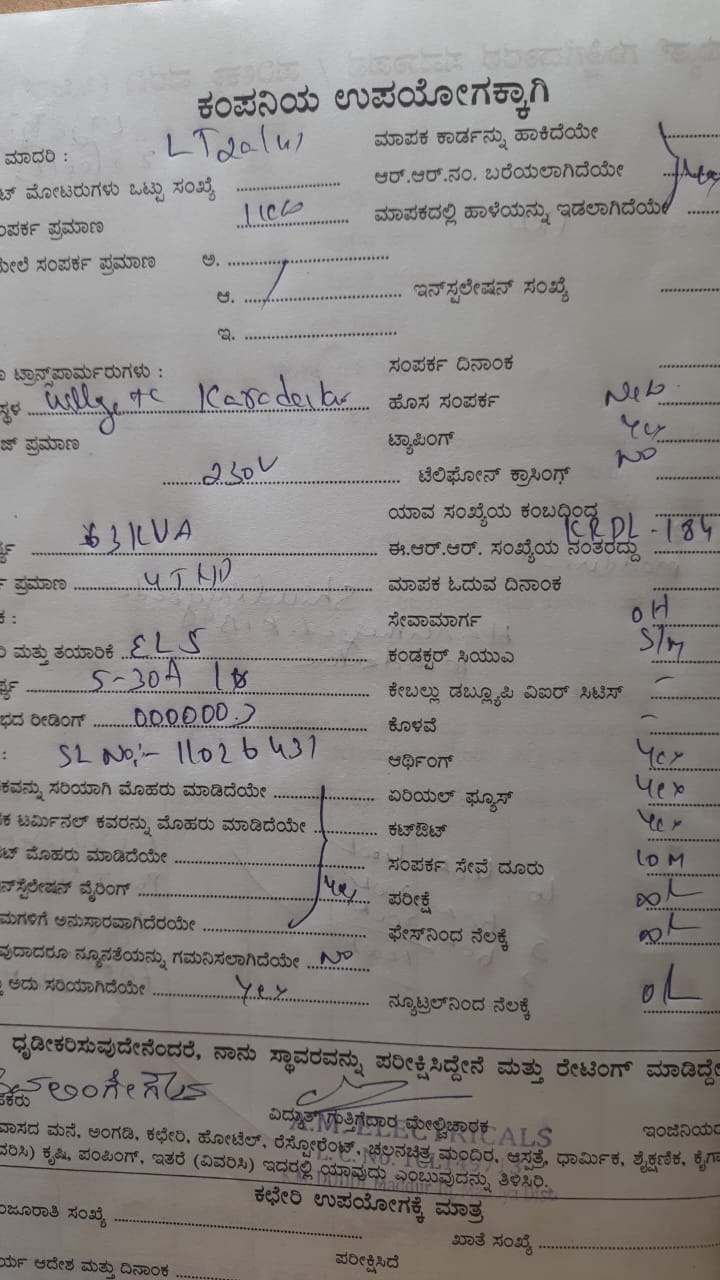 ಕಂಪನಿಯ ಉಪಯೋಗಕ್ಕಾಗಿ
ಮಾದರಿ : LT2a(ii) ಮಾಪಕ ಕಾರ್ಡನ್ನು ಹಾಕಿದೆಯೇ
ಟ್ ಮೋಟರುಗಳು ಒಟ್ಟು ಸಂಖ್ಯೆ ಆರ್.ಆರ್.ನಂ. ಬರೆಯಲಾಗಿದೆಯೇ Yes
ಂಪರ್ಕ ಪ್ರಮಾಣ ಮಾಪಕದಲ್ಲಿ ಹಾಳೆಯನ್ನು ಇಡಲಾಗಿದೆಯೇ
ಮೇಲೆ ಸಂಪರ್ಕ ಪ್ರಮಾಣ ಅ.
ಆ. ಇನ್‌ಸ್ಪಲೇಷನ್ ಸಂಖ್ಯೆ
ಇ.
ಟ್ರಾನ್ಸ್‌ಪಾರ್ಮರುಗಳು : ಸಂಪರ್ಕ ದಿನಾಂಕ
ಸ್ಥಳ ಹೊಸ ಸಂಪರ್ಕ New
ಜ್ ಪ್ರಮಾಣ ಟ್ಯಾಪಿಂಗ್ Yes
230V ಟೆಲಿಫೋನ್ ಕ್ರಾಸಿಂಗ್ NO
ಯಾವ ಸಂಖ್ಯೆಯ ಕಂಬದಿಂದ
63KVA ಈ.ಆರ್.ಆರ್. ಸಂಖ್ಯೆಯ ನಂತರದ್ದು KRDL-184
ಪ್ರಮಾಣ ಮಾಪಕ ಓದುವ ದಿನಾಂಕ
ಕ : ಸೇವಾಮಾರ್ಗ OH
ಮತ್ತು ತಯಾರಿಕೆ ELS ಕಂಡಕ್ಟರ್ ಸಿಯುಎ
5-30A ಕೇಬಲ್ಲು ಡಬ್ಲ್ಯೂಪಿ ವಿಐರ್ ಸಿಟಿಸ್ –
ಭದ ರೀಡಿಂಗ್ ಕೊಳವೆ –
: SL No:- 11026431 ಆರ್ಥಿಂಗ್ Yes
ಕವನ್ನು ಸರಿಯಾಗಿ ಮೊಹರು ಮಾಡಿದೆಯೇ ಏರಿಯಲ್ ಫ್ಯೂಸ್ Yes
ಕ ಟರ್ಮಿನಲ್ ಕವರನ್ನು ಮೊಹರು ಮಾಡಿದೆಯೇ ಕಟ್‌ಔಟ್ Yes
ಟ್ ಮೊಹರು ಮಾಡಿದೆಯೇ ಸಂಪರ್ಕ ಸೇವೆ ದೂರು 10M
ನ್‌ಸ್ಪೆಲೇಷನ್ ವೈರಿಂಗ್ Yes ಪರೀಕ್ಷೆ
ಮಗಳಿಗೆ ಅನುಸಾರವಾಗಿದೆರಯೇ ಫೇಸ್‌ನಿಂದ ನೆಲಕ್ಕೆ
ವುದಾದರೂ ನ್ಯೂನತೆಯನ್ನು ಗಮನಿಸಲಾಗಿದೆಯೇ NO
ಅದು ಸರಿಯಾಗಿದೆಯೇ Yes ನ್ಯೂಟ್ರಲ್‌ನಿಂದ ನೆಲಕ್ಕೆ
ಧೃಡೀಕರಿಸುವುದೇನೆಂದರೆ, ನಾನು ಸ್ಥಾವರವನ್ನು ಪರೀಕ್ಷಿಸಿದ್ದೇನೆ ಮತ್ತು ರೇಟಿಂಗ್ ಮಾಡಿದ್ದೇ
ವಿದ್ಯುತ್ ಗುತ್ತಿಗೆದಾರ ಮೇಲ್ವಿಚಾರಕ ಇಂಜಿನಿಯರ
A.M. ELECTRICALS
ವಾಸದ ಮನೆ, ಅಂಗಡಿ, ಕಛೇರಿ, ಹೋಟೆಲ್, ರೆಸ್ಟೋರೆಂಟ್, ಚಲನಚಿತ್ರ ಮಂದಿರ, ಆಸ್ಪತ್ರೆ, ಧಾರ್ಮಿಕ, ಶೈಕ್ಷಣಿಕ, ಕೈಗಾ
ವರಿಸಿ) ಕೃಷಿ, ಪಂಪಿಂಗ್, ಇತರೆ (ವಿವರಿಸಿ) ಇದರಲ್ಲಿ ಯಾವುದು ಎಂಬುವುದನ್ನು ತಿಳಿಸಿರಿ.
ಕಛೇರಿ ಉಪಯೋಗಕ್ಕೆ ಮಾತ್ರ
ಂಜೂರಾತಿ ಸಂಖ್ಯೆ ಖಾತೆ ಸಂಖ್ಯೆ
ರ್ಯ ಆದೇಶ ಮತ್ತು ದಿನಾಂಕ ಪರೀಕ್ಷಿಸಿದೆ